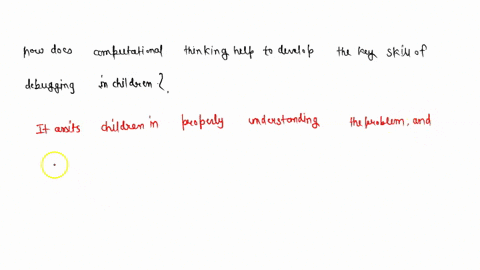 how does computational thinking help to develop the key skill of
debugging in children ?.
It assits children in properly understanding the problem, and